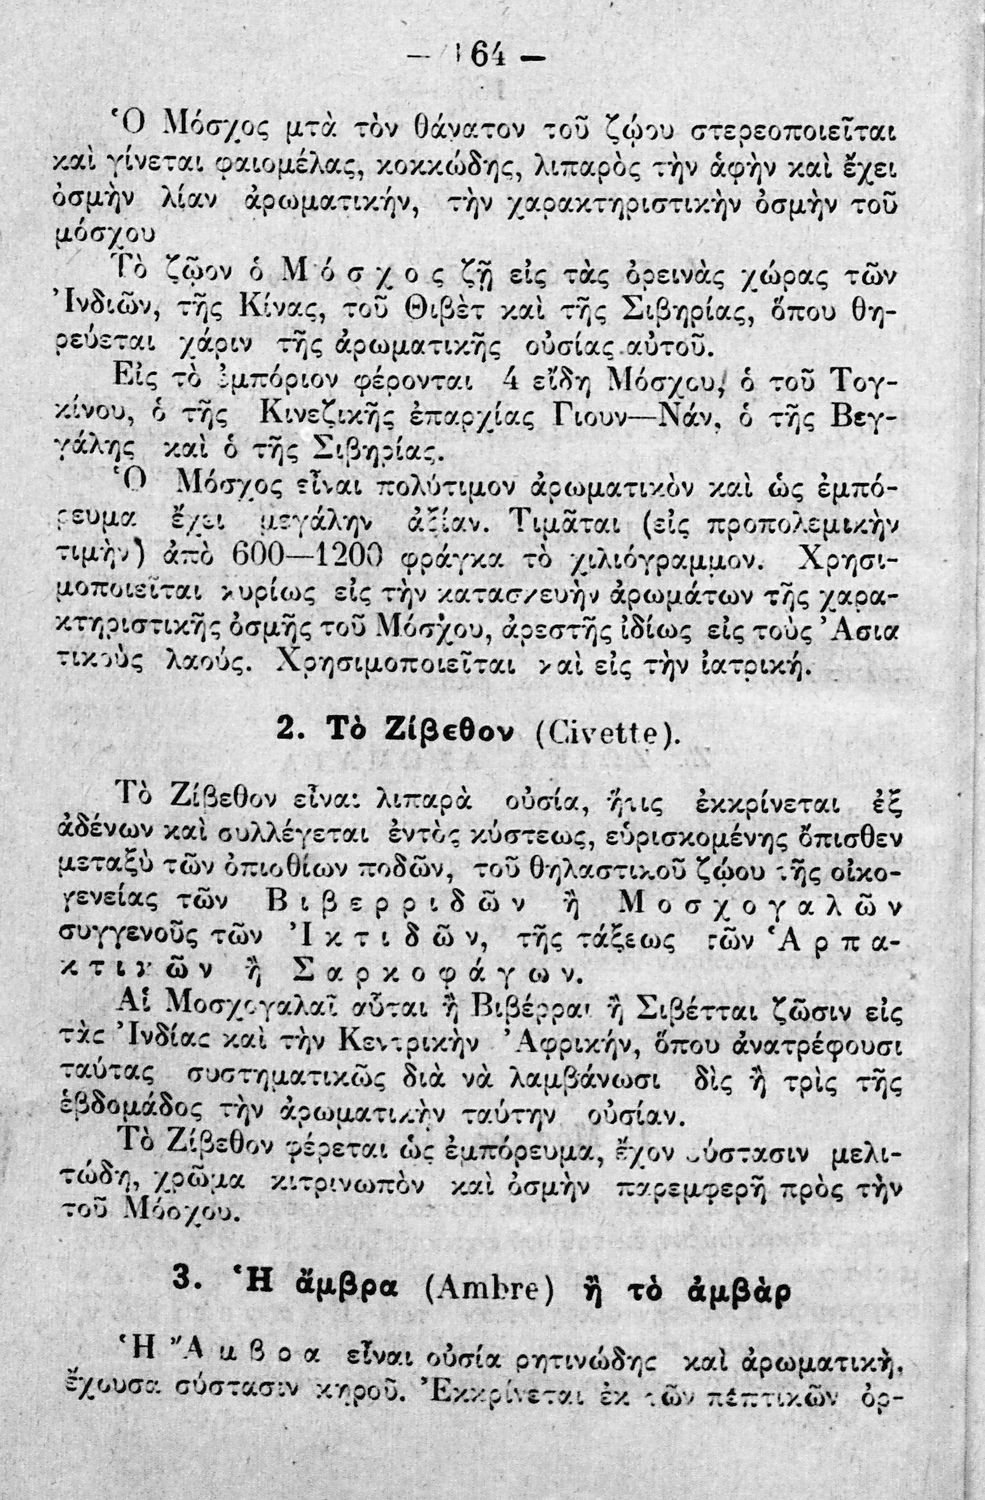 — 164 —
Ὁ Μόσχος μτὰ τὸν θάνατον τοῦ ζῴου στερεοποιεῖται
καὶ γίνεται φαιομέλας, κοκκώδης, λιπαρὸς τὴν ἁφὴν καὶ ἔχει
ὀσμὴν λίαν ἀρωματικήν, τὴν χαρακτηριστικὴν ὀσμὴν τοῦ
μόσχου
Τὸ ζῷον ὁ Μ ό σ χ ο ς ζῇ εἰς τὰς ὀρεινὰς χώρας τῶν
Ἰνδιῶν, τῆς Κίνας, τοῦ Θιβὲτ καὶ τῆς Σιβηρίας, ὅπου θη-
ρεύεται χάριν τῆς ἀρωματικῆς οὐσίας αὐτοῦ.
Εἰς τὸ ἐμπόριον φέρονται 4 εἴδη Μόσχου, ὁ τοῦ Τογ-
κίνου, ὁ τῆς Κινεζικῆς ἐπαρχίας Γιουν—Νάν, ὁ τῆς Βεγ-
γάλης καὶ ὁ τῆς Σιβηρίας.
Ὁ Μόσχος εἶναι πολύτιμον ἀρωματικὸν καὶ ὡς ἐμπό-
ρευμα ἔχει μεγάλην ἀξίαν. Τιμᾶται (εἰς προπολεμικὴν
τιμὴν) ἀπὸ 600—1200 φράγκα τὸ χιλιόγραμμον. Χρησι-
μοποιεῖται κυρίως εἰς τὴν κατασκευὴν ἀρωμάτων τῆς χαρα-
κτηριστικῆς ὀσμῆς τοῦ Μόσχου, ἀρεστῆς ἰδίως εἰς τοὺς Ἀσια
τικοὺς λαούς. Χρησιμοποιεῖται καὶ εἰς τὴν ἰατρική.
2. Τὸ Ζίβεθον (Civette).
Τὸ Ζίβεθον εἶναι λιπαρὰ οὐσία, ἥτις ἐκκρίνεται ἐξ
ἀδένων καὶ συλλέγεται ἐντὸς κύστεως, εὑρισκομένης ὄπισθεν
μεταξὺ τῶν ὀπισθίων ποδῶν, τοῦ θηλαστικοῦ ζῴου τῆς οἰκο-
γενείας τῶν Β ι β ε ρ ρ ι δ ῶ ν ἢ Μ ο σ χ ο γ α λ ῶ ν
συγγενοῦς τῶν Ἰ κ τ ι δ ῶ ν, τῆς τάξεως τῶν Ἁ ρ π α-
κ τ ι κ ῶ ν ἢ Σ α ρ κ ο φ ά γ ω ν.
Αἱ Μοσχογαλαῖ αὗται ἢ Βιβέρραι ἢ Σιβέτται ζῶσιν εἰς
τὰς Ἰνδίας καὶ τὴν Κεντρικὴν Ἀφρικήν, ὅπου ἀνατρέφουσι
ταύτας συστηματικῶς διὰ νὰ λαμβάνωσι δὶς ἢ τρὶς τῆς
ἑβδομάδος τὴν ἀρωματικὴν ταύτην οὐσίαν.
Τὸ Ζίβεθον φέρεται ὡς ἐμπόρευμα, ἔχον σύστασιν μελι-
τώδη, χρῶμα κιτρινωπὸν καὶ ὀσμὴν παρεμφερῆ πρὸς τὴν
τοῦ Μόσχου.
3. Ἡ ἄμβρα (Ambre) ἢ τὸ ἀμβὰρ
Ἡ Ἄ μ β ρ α εἶναι οὐσία ρητινώδης καὶ ἀρωματικὴ,
ἔχουσα σύστασιν κηροῦ. Ἐκκρίνεται ἐκ τῶν πεπτικῶν ὀρ-